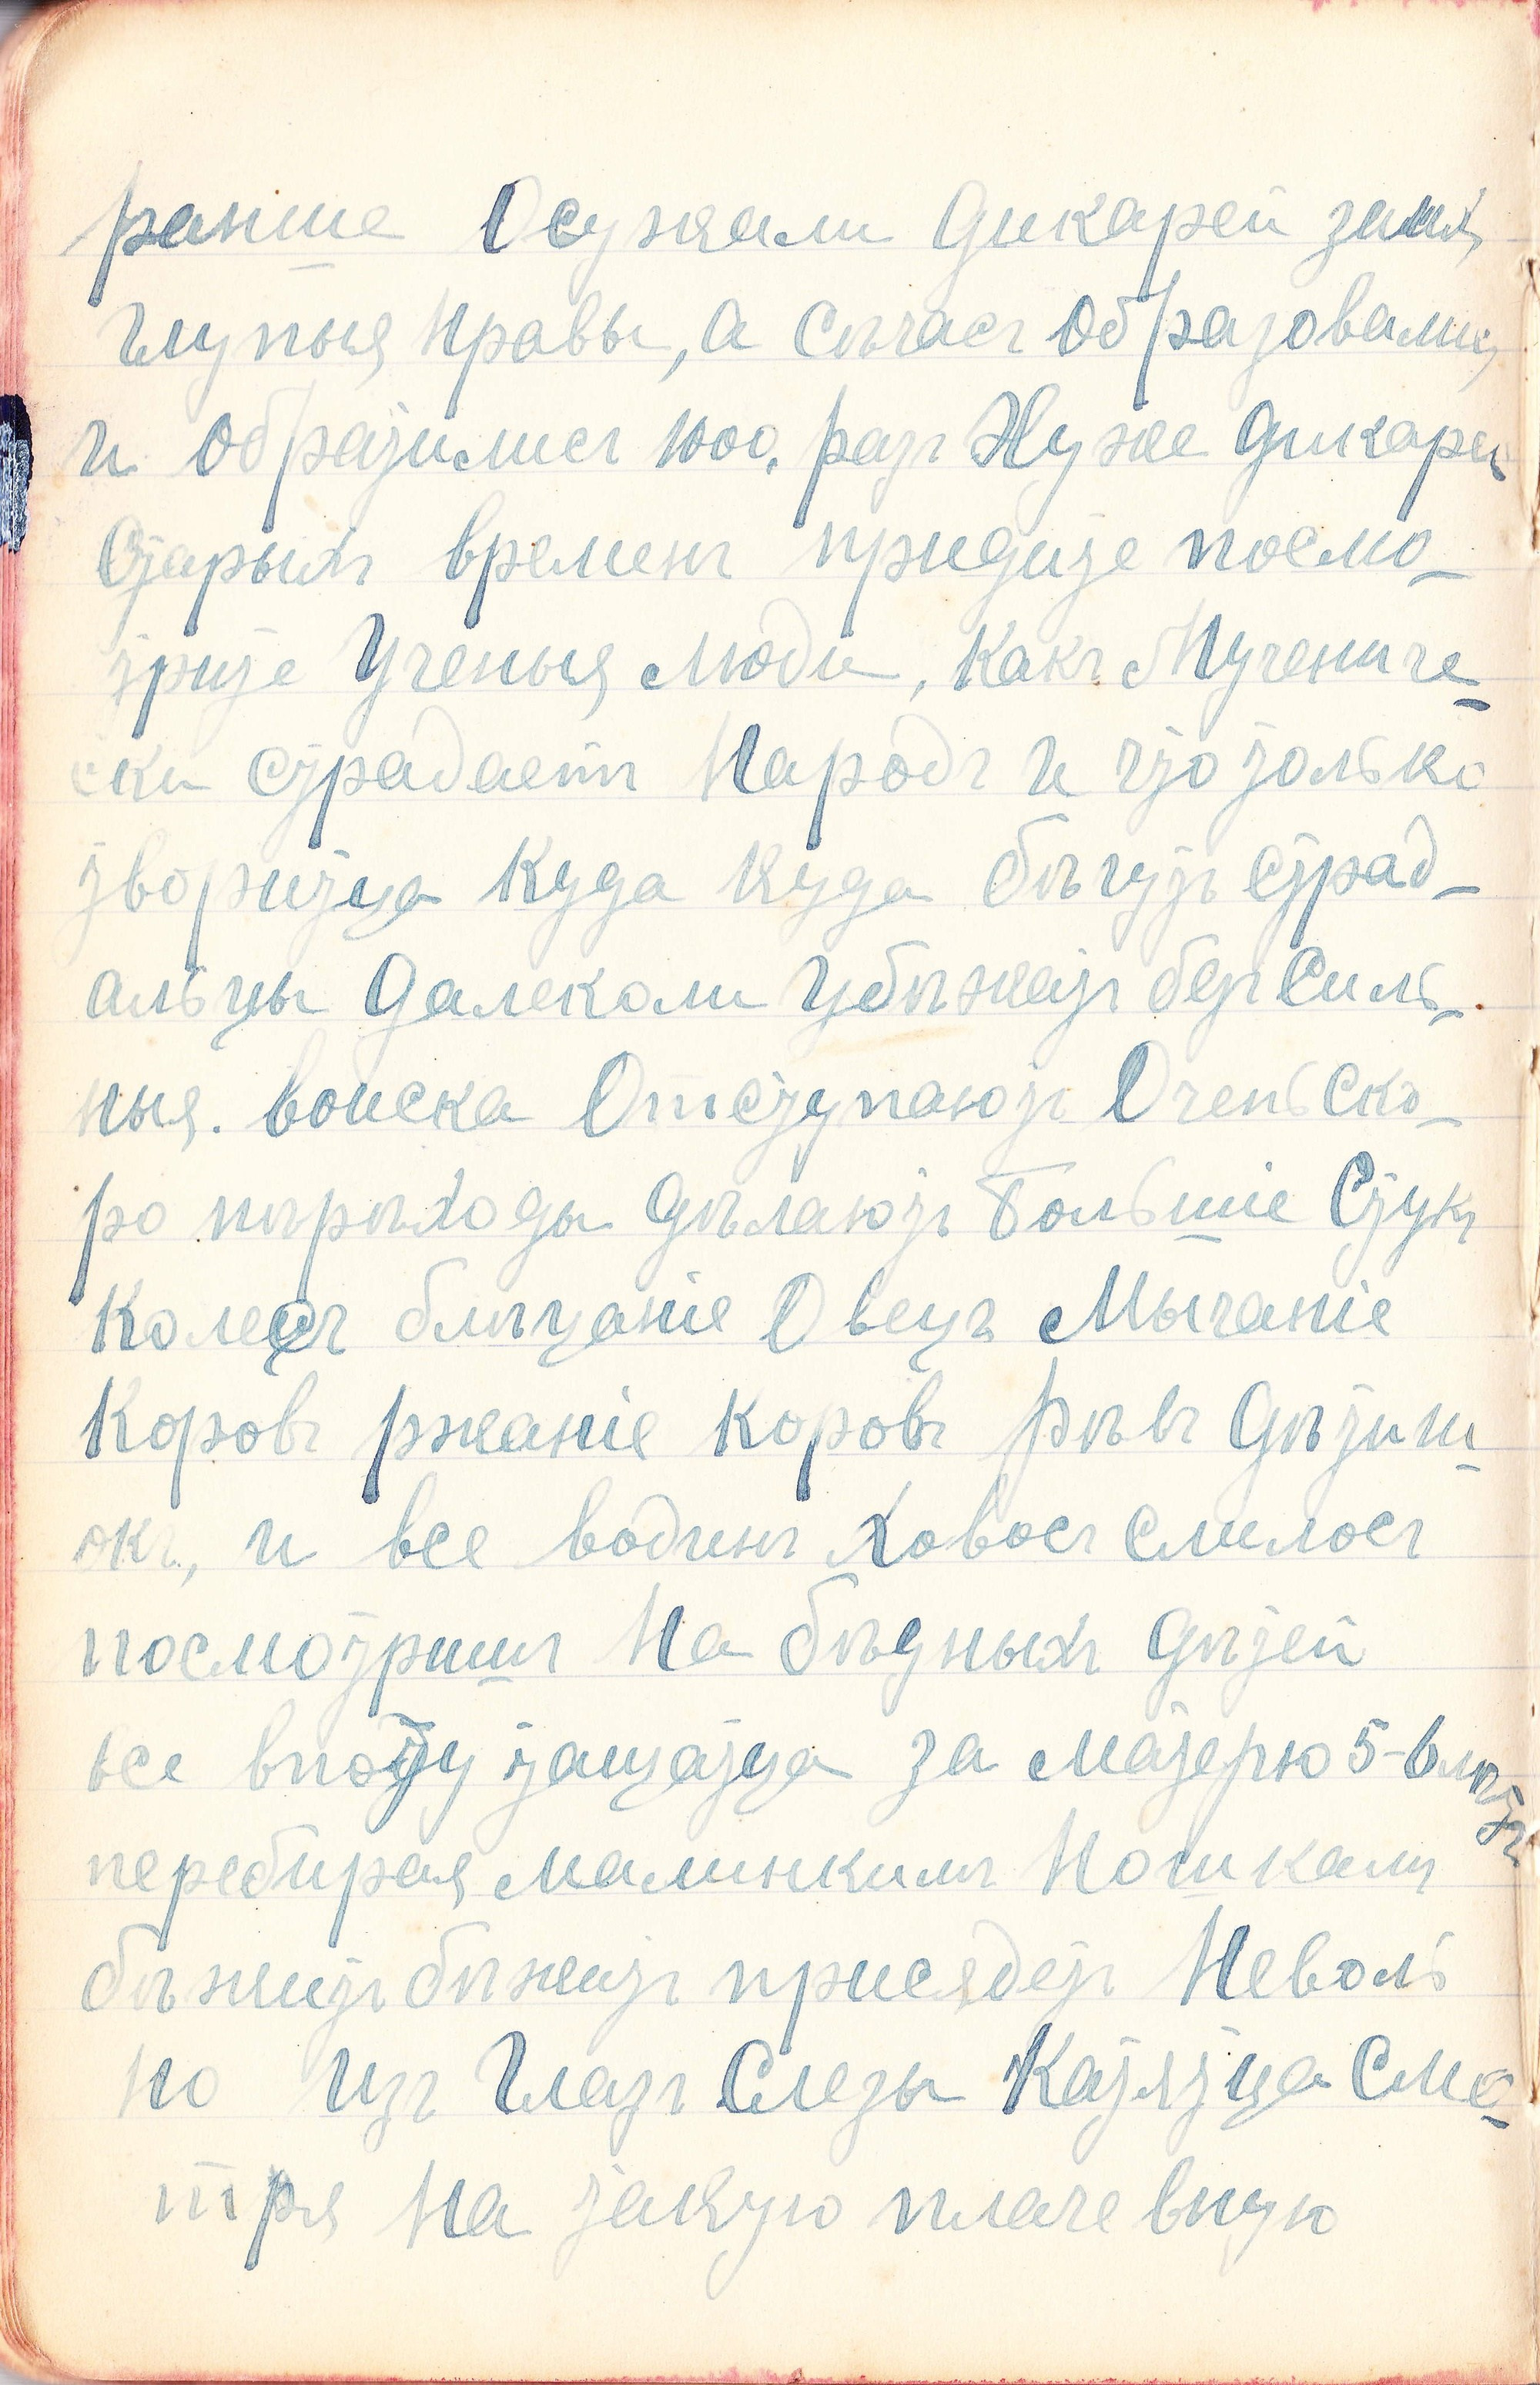 ранше Осужали дикарей за ихъ
глупыя нравы, а сѣчасъ образовались
и образились 1000. разъ Хуже дикарей
Старыхъ временъ придите посмо-
трите Ученыя люди, какъ Мучениче-
ски страдаетъ Народъ и что только
творитца куда куда бѣгутъ страд-
альцы далеколи Убѣжатъ безъ Силь-
ныя. воиска Отступаютъ Очень Ско-
ро пѣрѣходы дѣлаютъ Большіе Стукъ
Колесъ блѣцаніе Овецъ Мычаніе
Коровъ ржаніе коровъ рѣвъ дѣтиш-
окъ, и все водинъ Ховосъ слилосъ
посмотришъ На бѣдныхъ дѣтей
все впоту тащатца за матерю 5-6 лѣтъ
перебирая малинкимъ Ношками
бѣжитъ бѣжитъ присядетъ Неволь
но Изъ Глазъ Слезы Катятца Смо-
тря На такую плачевную